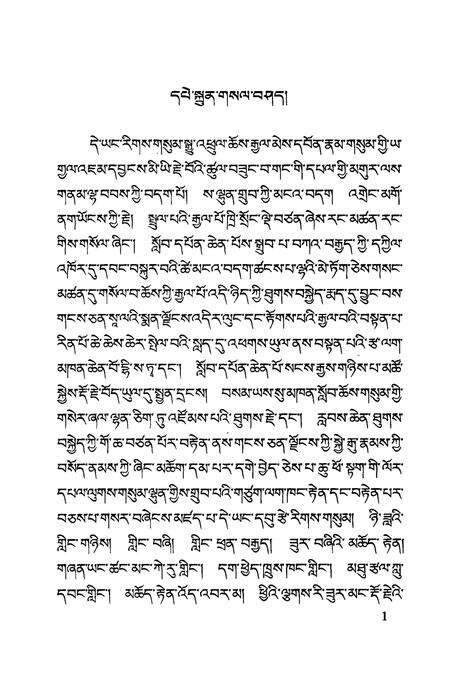 དཔེ་སྐྲུན་གསལ་བཤད།
དེ་ཡང་རིགས་གསུམ་སྒྱུ་འཕྲུལ་ཆོས་རྒྱལ་མེས་དབོན་རྣམ་གསུམ་གྱི་ཡ
གྱལ་འཇམ་དབྱངས་མི་ཡི་རྗེ་བོའི་ཚུལ་བཟུང་བ་གང་གི་དཔལ་གྱི་མགུར་ལས
གནམ་ལྷ་བབས་ཀྱི་བདག་པོ། ས་ལྷུན་གྲུབ་ཀྱི་མངའ་བདག འགྲེང་མགོ་
ནག་ཡོངས་ཀྱི་རྗེ། སྤྲུལ་པའི་རྒྱལ་པོ་ཁྲི་སྲོང་ལྡེ་བཙན་ཞེས་རང་མཚན་རང་
གིས་གསོལ་ཞིང་། སློབ་དཔོན་ཆེན་པོས་སྒྲུབ་པ་བཀའ་བརྒྱད་ཀྱི་དཀྱིལ
འཁོར་དུ་དབང་བསྐུར་བའི་ཚེ་མངའ་བདག་ཚངས་པ་ལྷའི་མེ་ཏོག་ཅེས་གསང་
མཚན་དུ་གསོལ་བ་ཆོས་ཀྱི་རྒྱལ་པོ་འདི་ཉིད་ཀྱི་ཐུགས་བསྐྱེད་རྨད་དུ་བྱུང་བས
གངས་ཅན་སཱ་ལའི་སྨན་ལྗོངས་འདིར་ལུང་དང་རྟོགས་པའི་རྒྱལ་བའི་བསྟན་པ་
རིན་པོ་ཆེ་ཆེས་ཆེར་སྤེལ་བའི་སླད་དུ་འཕགས་ཡུལ་ནས་བསྟན་པའི་རྩ་ལག
མཁན་ཆེན་བོ་དྷི་ས་ཏྭ་དང་། སློབ་དཔོན་ཆེན་པོ་སངས་རྒྱས་གཉིས་པ་མཚོ་
སྐྱེས་རྡོ་རྗེ་བོད་ཡུལ་དུ་སྤྱན་དྲངས། བསམ་ཡས་སུ་མཁན་སློབ་ཆོས་གསུམ་གྱི་
གསེར་ཞལ་ལྷན་ཅིག་ཏུ་འཛོམས་པའི་ཐུགས་རྗེ་དང་། རླབས་ཆེན་ཐུགས་
བསྐྱེད་ཀྱི་གོ་ཆ་བཙན་པོར་བརྟེན་ནས་གངས་ཅན་ལྗོངས་ཀྱི་སྐྱེ་རྒུ་རྣམས་ཀྱི་
བསོད་ནམས་ཀྱི་ཞིང་མཆོག་དམ་པར་དགེ་བྱེད་ཅེས་པ་ཆུ་ཕོ་སྟག་གི་ལོར་
དཔལ་ལུགས་གསུམ་ལྷུན་གྱིས་གྲུབ་པའི་གཙུག་ལག་ཁང་རྟེན་དང་བརྟེན་པར་
བཅས་པ་གསར་བཞེངས་མཛད་པ་དེ་ཡང་དབུ་རྩེ་རིགས་གསུམ། ཉི་ཟླའི་
གླིང་གཉིས། གླིང་བཞི། གླིང་ཕྲན་བརྒྱད། ཟུར་བཞིའི་མཆོད་རྟེན།
གཞན་ཡང་ཚང་མང་ཀེ་རུ་གླིང་། དག་བྱེད་ཁྲུས་ཁང་གླིང་། མཐུ་རྩལ་ཀླུ་
དབང་གླིང་། མཆོད་རྟེན་འོད་འབར་མ། ཕྱིའི་ལྕགས་རི་ཟུར་མང་རྡོ་རྗེའི་
1